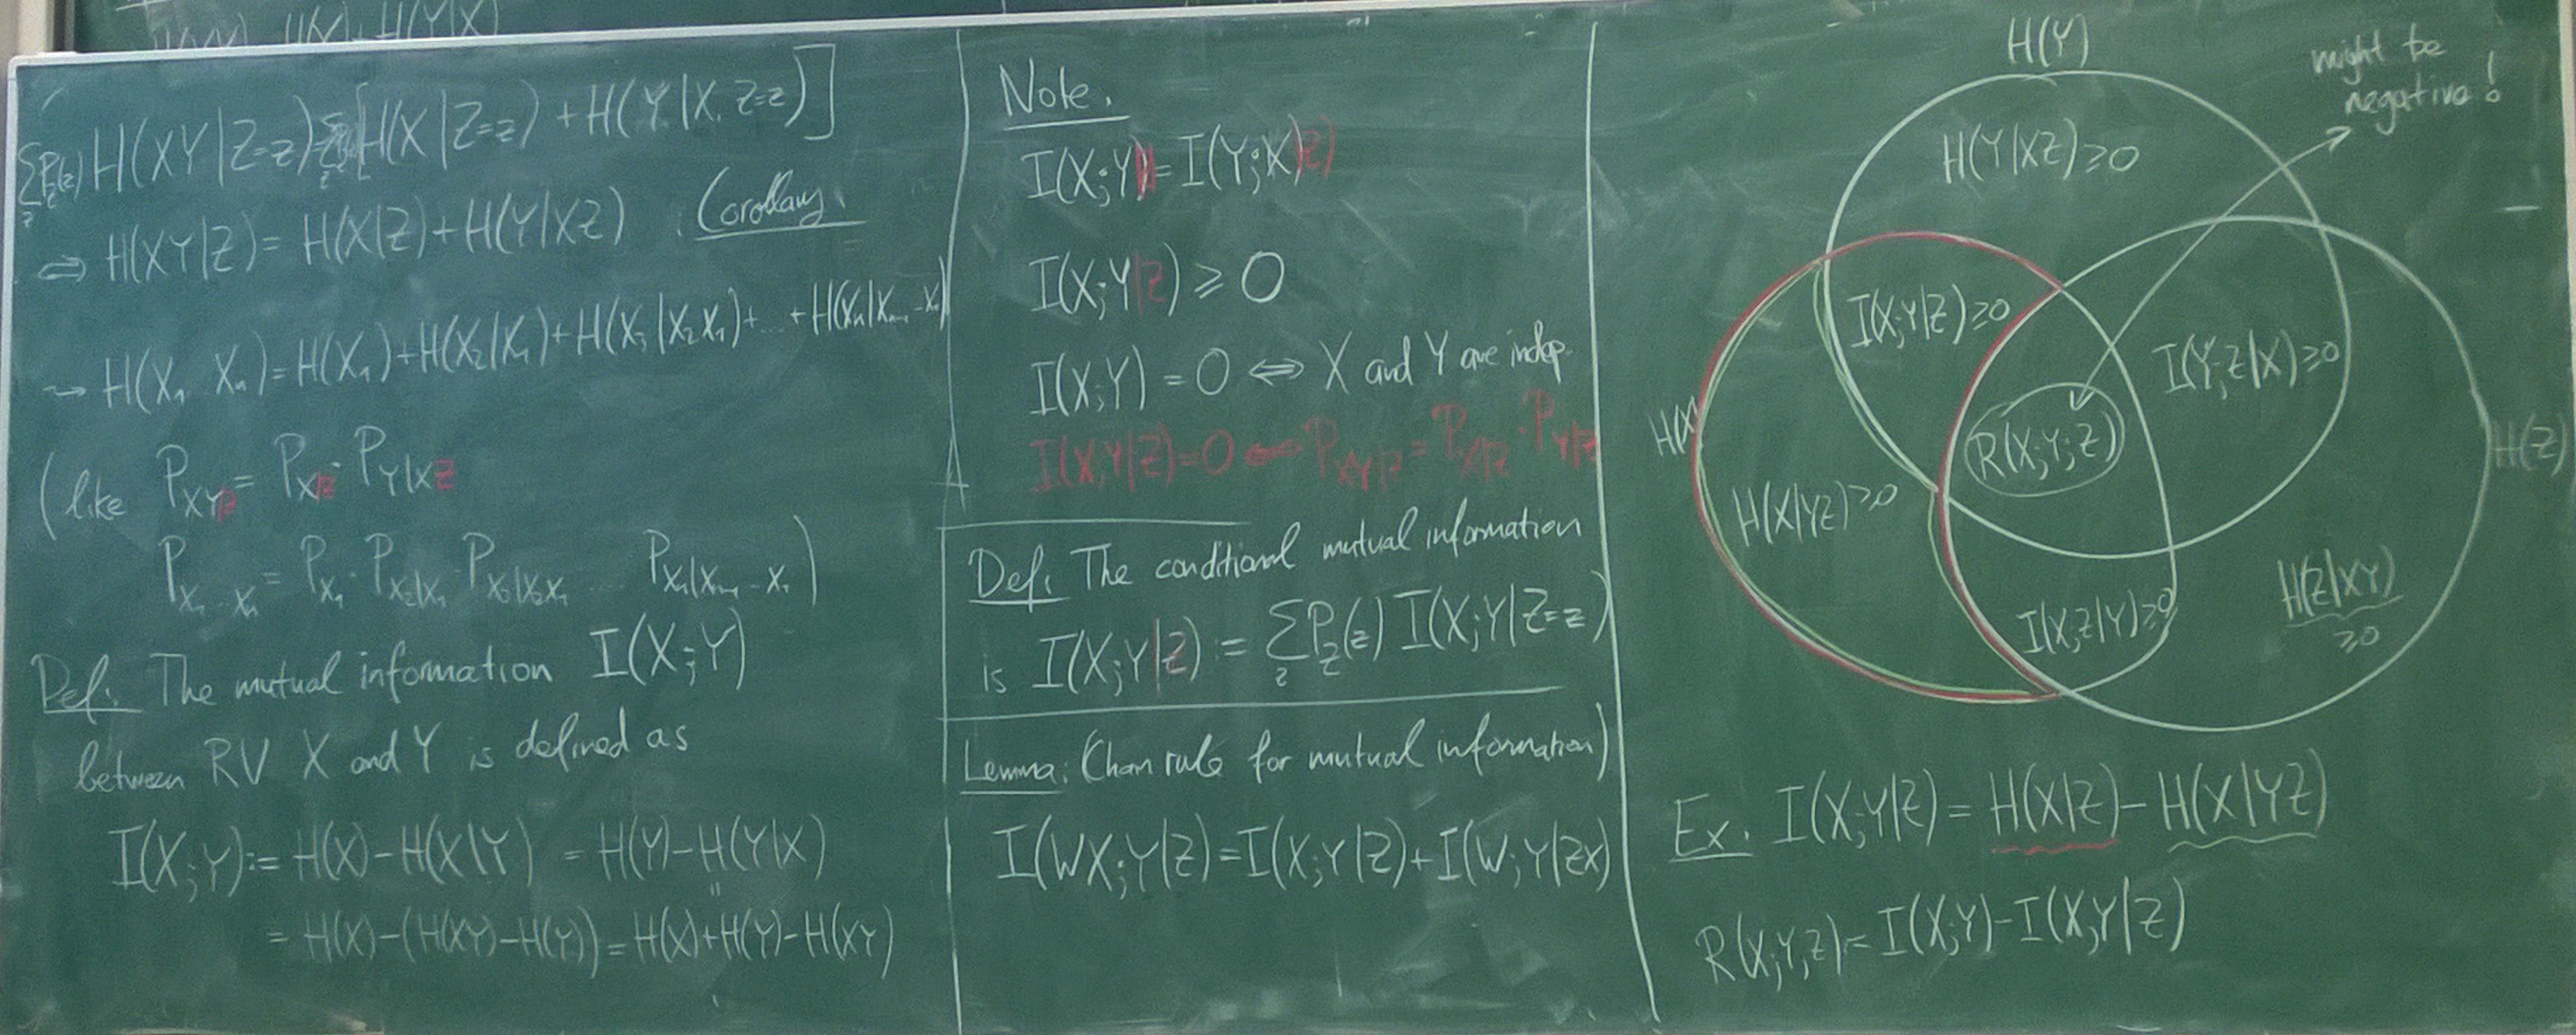 H(Y|X)
∑_z P_Z(z) H(XY|Z=z) = ∑_z [H(X|Z=z) + H(Y|X, Z=z)]
⇔ H(XY|Z) = H(X|Z) + H(Y|XZ) Corollary.
⇝ H(X₁ Xₙ) = H(X₁) + H(X₂|X₁) + H(X₃|X₂X₁) + ... + H(Xₙ|Xₙ₋₁ - X₁)
(like P_{XY|Z} = P_{X|Z} · P_{Y|XZ}
P_{X₁...Xₙ} = P_{X₁} · P_{X₂|X₁} · P_{X₃|X₂X₁} ... P_{Xₙ|Xₙ₋₁...X₁})
Def: The mutual information I(X;Y)
between RV X and Y is defined as
I(X;Y) := H(X) - H(X|Y) = H(Y) - H(Y|X)
"
= H(X) - (H(XY) - H(Y)) = H(X) + H(Y) - H(XY)
Note.
I(X;Y) = I(Y;X|Z)
I(X;Y|Z) ≥ 0
I(X;Y) = 0 ⇔ X and Y are indep.
I(X;Y|Z) = 0 ⇔ P_{XY|Z} = P_{X|Z} · P_{Y|Z}
Def: The conditional mutual information
is I(X;Y|Z) := ∑_z P_Z(z) I(X;Y|Z=z)
Lemma: (Chain rule for mutual information)
I(WX;Y|Z) = I(X;Y|Z) + I(W;Y|ZX)
H(Y)
might be
negative!
H(Y|XZ) ≥ 0
I(X;Y|Z) ≥ 0
I(Y;Z|X) ≥ 0
H(X)
R(X;Y;Z)
H(Z)
H(X|YZ) ≥ 0
I(X;Z|Y) ≥ 0
H(Z|XY)
≥ 0
Ex. I(X;Y|Z) = H(X|Z) - H(X|YZ)
R(X;Y;Z) = I(X;Y) - I(X;Y|Z)